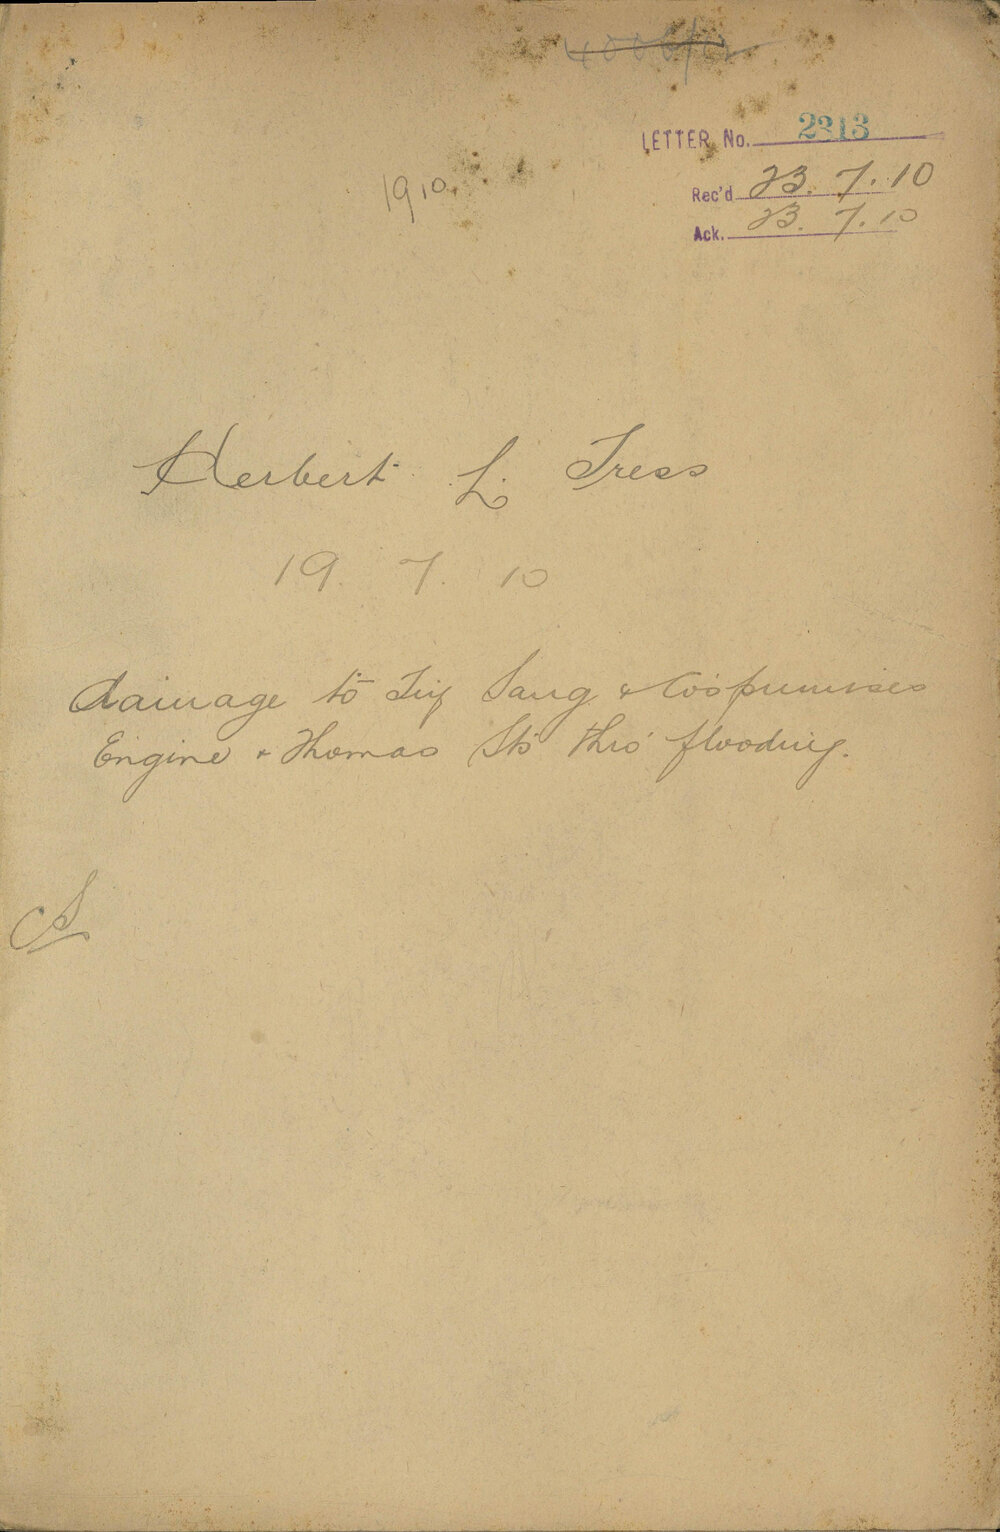 4006/10
LETTER No. 2313
1910
Rec'd 23. 7. 10
Ack. 23. 7. 10
Herbert L. Tress
19. 7. 10
damage to Tiy Sang & Co's premises
Engine & Thomas Sts thro' flooding.